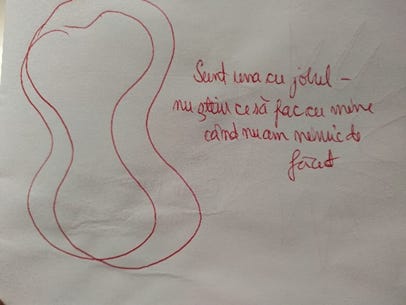 Sunt una cu jobul –
nu știu ce să fac cu mine
când nu am nimic de
făcut